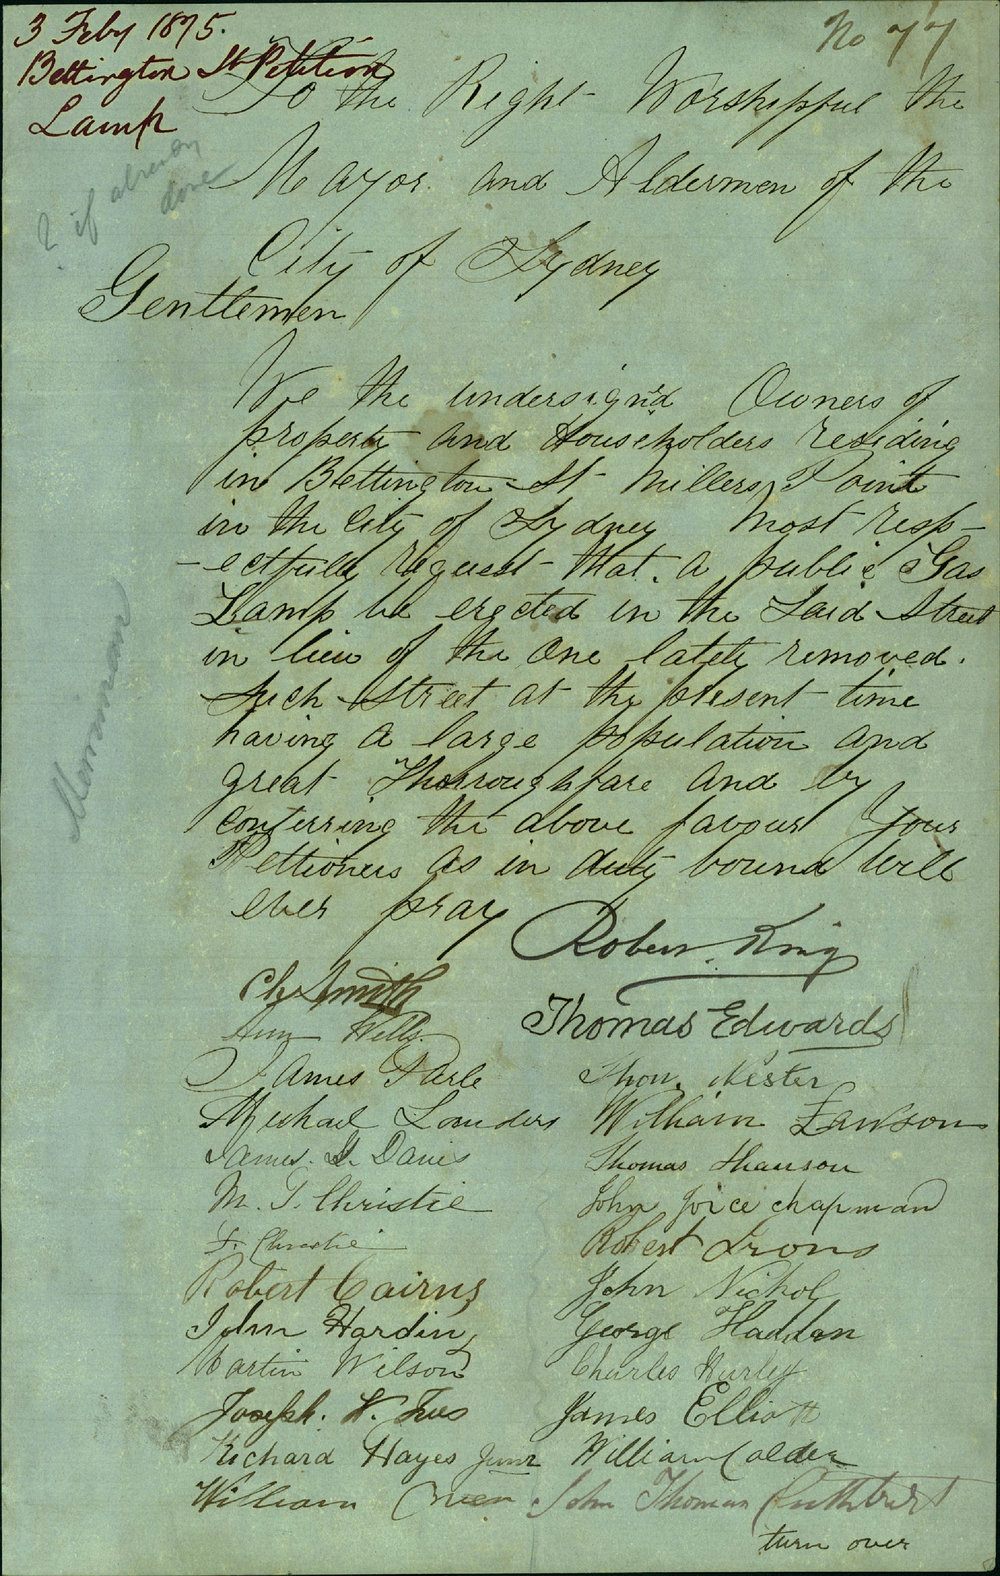 3 Feby 1875.
No 77
Bettington St Petition
Lamp
? if already
done
To the Right Worshipful the
Mayor and Aldermen of the
City of Sydney
Gentlemen
We the undersign'd Owners of
property and Householders residing
in Bettington St Millers Point
in the City of Sydney most resp-
-ectfully request that a public Gas
Lamp be erected in the Said Street
in lieu of the One lately removed.
Such Street at the present time
having a large population and
great Thorroughfare and by
conferring the above favour Your
Petitioners as in duty bound will
ever pray
Robert King
Ch Smith
Thomas Edwards
Ann
James Earle
Thos. Nester
Michael Launders
William Lawson
James. G. Davis
Thomas
M. T. Christie
John Joice chapman
F. Christie
Robert Irons
Robert Cairns
John Nichol
John Harding
George Haddan
Martin Wilson
Charles Hurley
Joseph. W.
James Elliott
Richard Hayes Junr
William Calder
William
John Thomas Cuthbert
turn over